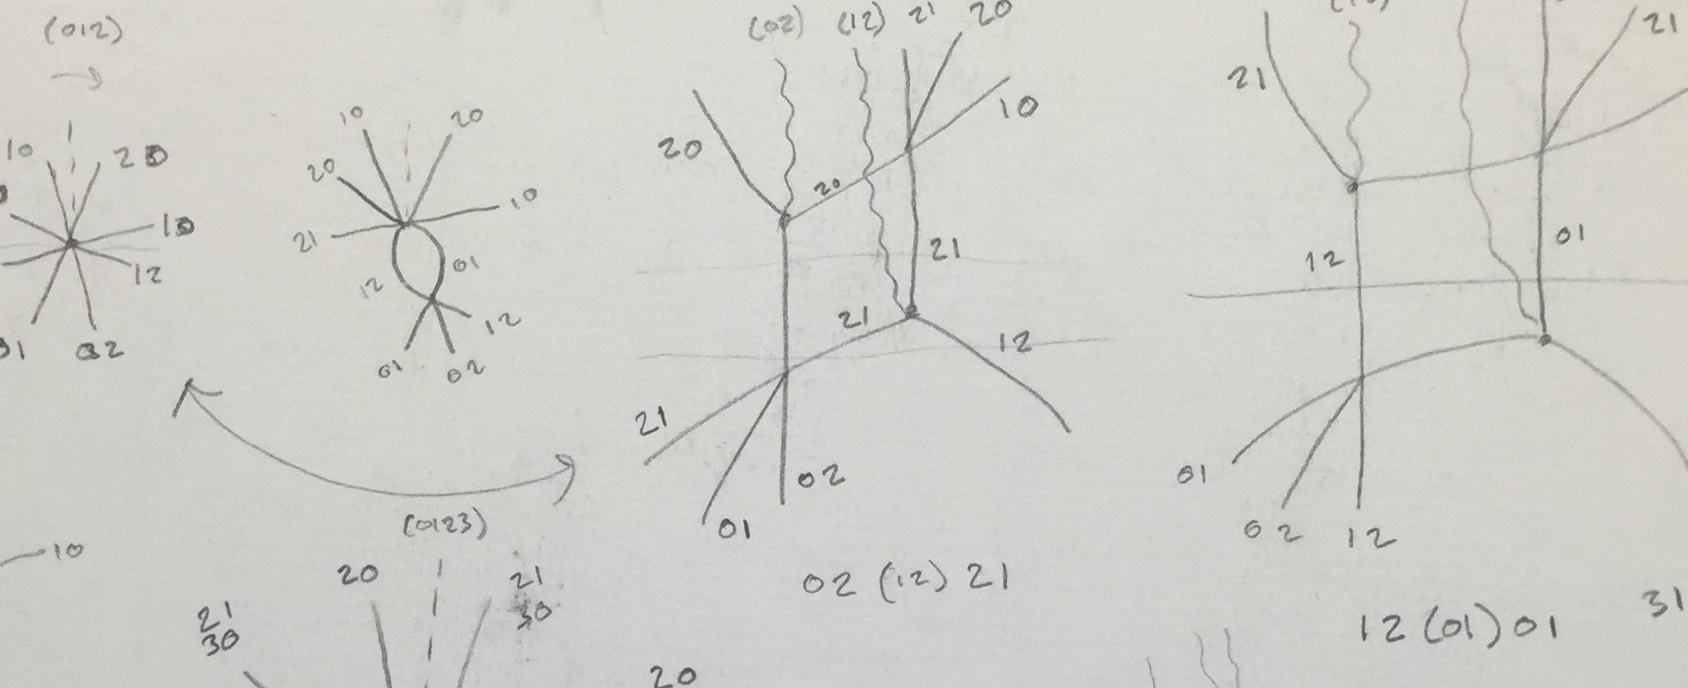 (012)
10
20
10
12
02
10
20
20
10
21
12
01
12
01
02
(02) (12) 21 20
20
20
10
21
21
12
21
01
02
02 (12) 21
21
21
12
01
01
02 12
12 (01) 01
31
10
(0123)
20
21
30
21
30
20